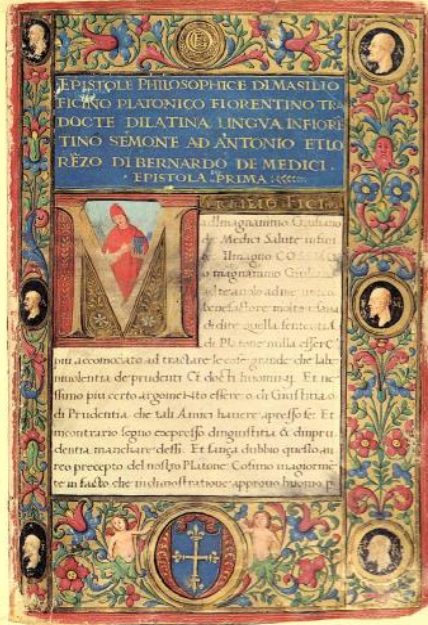 EPISTOLE PHILOSOPHICE DI MASILIO
FICINO PLATONICO FIORENTINO TRA
DOCTE DI LATINA LINGVA IN FIORE
TINO SEMONE AD ANTONIO ET LO
RĒZO DI BERNARDO DE MEDICI.
EPISTOLA PRIMA
M
magnanimo Giuliano
de Medici Salute
Il magno COSIMO
o magnanimo Giuliano
di Platone nulla essere
piu accomodato ad tractare le cose grande che la be
niuolentia de prudenti Et docti huomini. Et ne
ssimo piu certo argomēto essere o di Giustitia o
di Prudentia che tali Amici hauere apresso se: Et
incontrario segno expresso di ingiustitia & di inpru
dentia manchare dessi. Et sança dubbio questo au
reo precepto del nostro Platone Cosimo magiorme
te in facto che in dimostratione approuo